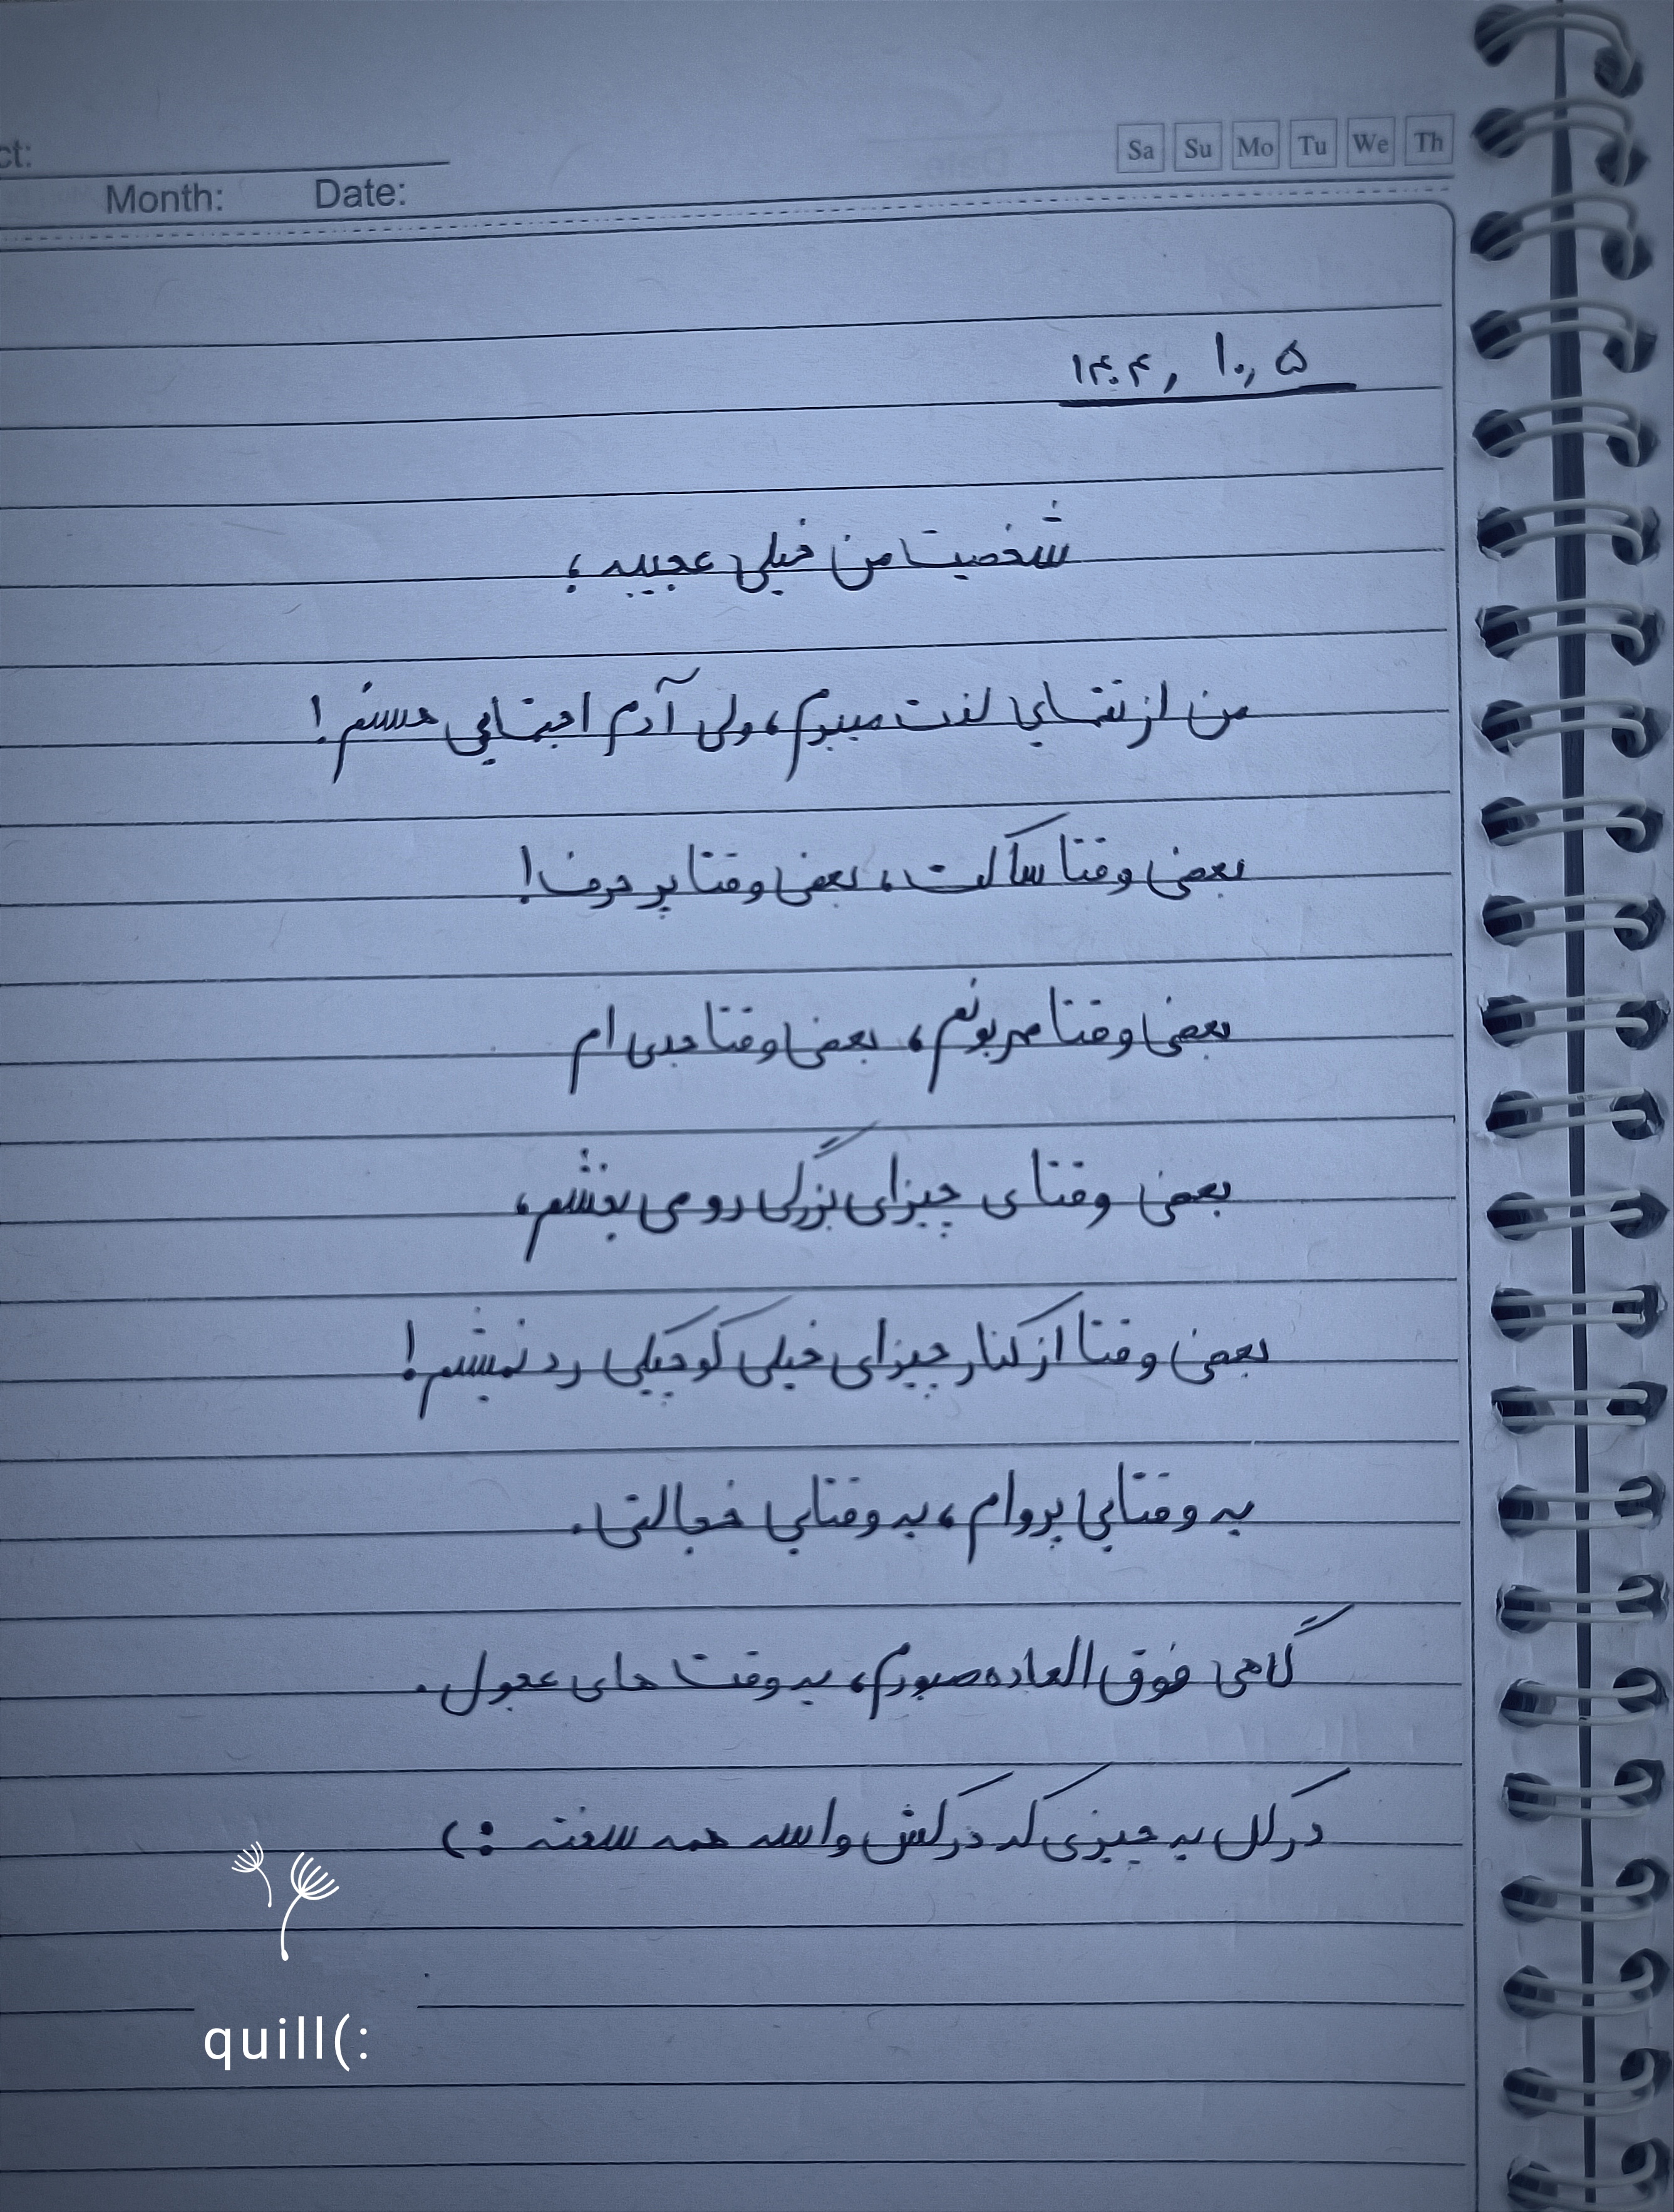 ct:
Sa Su Mo Tu We Th
Month: Date:
۱۴۰۴, ۱۰, ۵
شخصیت من خیلی عجیبیه ؛
من از تنهایی لذت میبرم، ولی آدم اجتماعی هستم!
بعضی وقتا ساکت، بعضی وقتا پر حرف!
بعضی وقتا مهربونم، بعضی وقتا جدی ام
بعضی وقتای چیزای بزرگی رو می بخشم،
بعضی وقتا از کنار چیزای خیلی کوچیکی رد نمیشم!
یه وقتایی پروام، یه وقتایی خجالتی.
گاهی فوق العاده صبورم، یه وقت های عجول.
در کل یه چیزی که درکش واسه همه سخته :)
quill(: